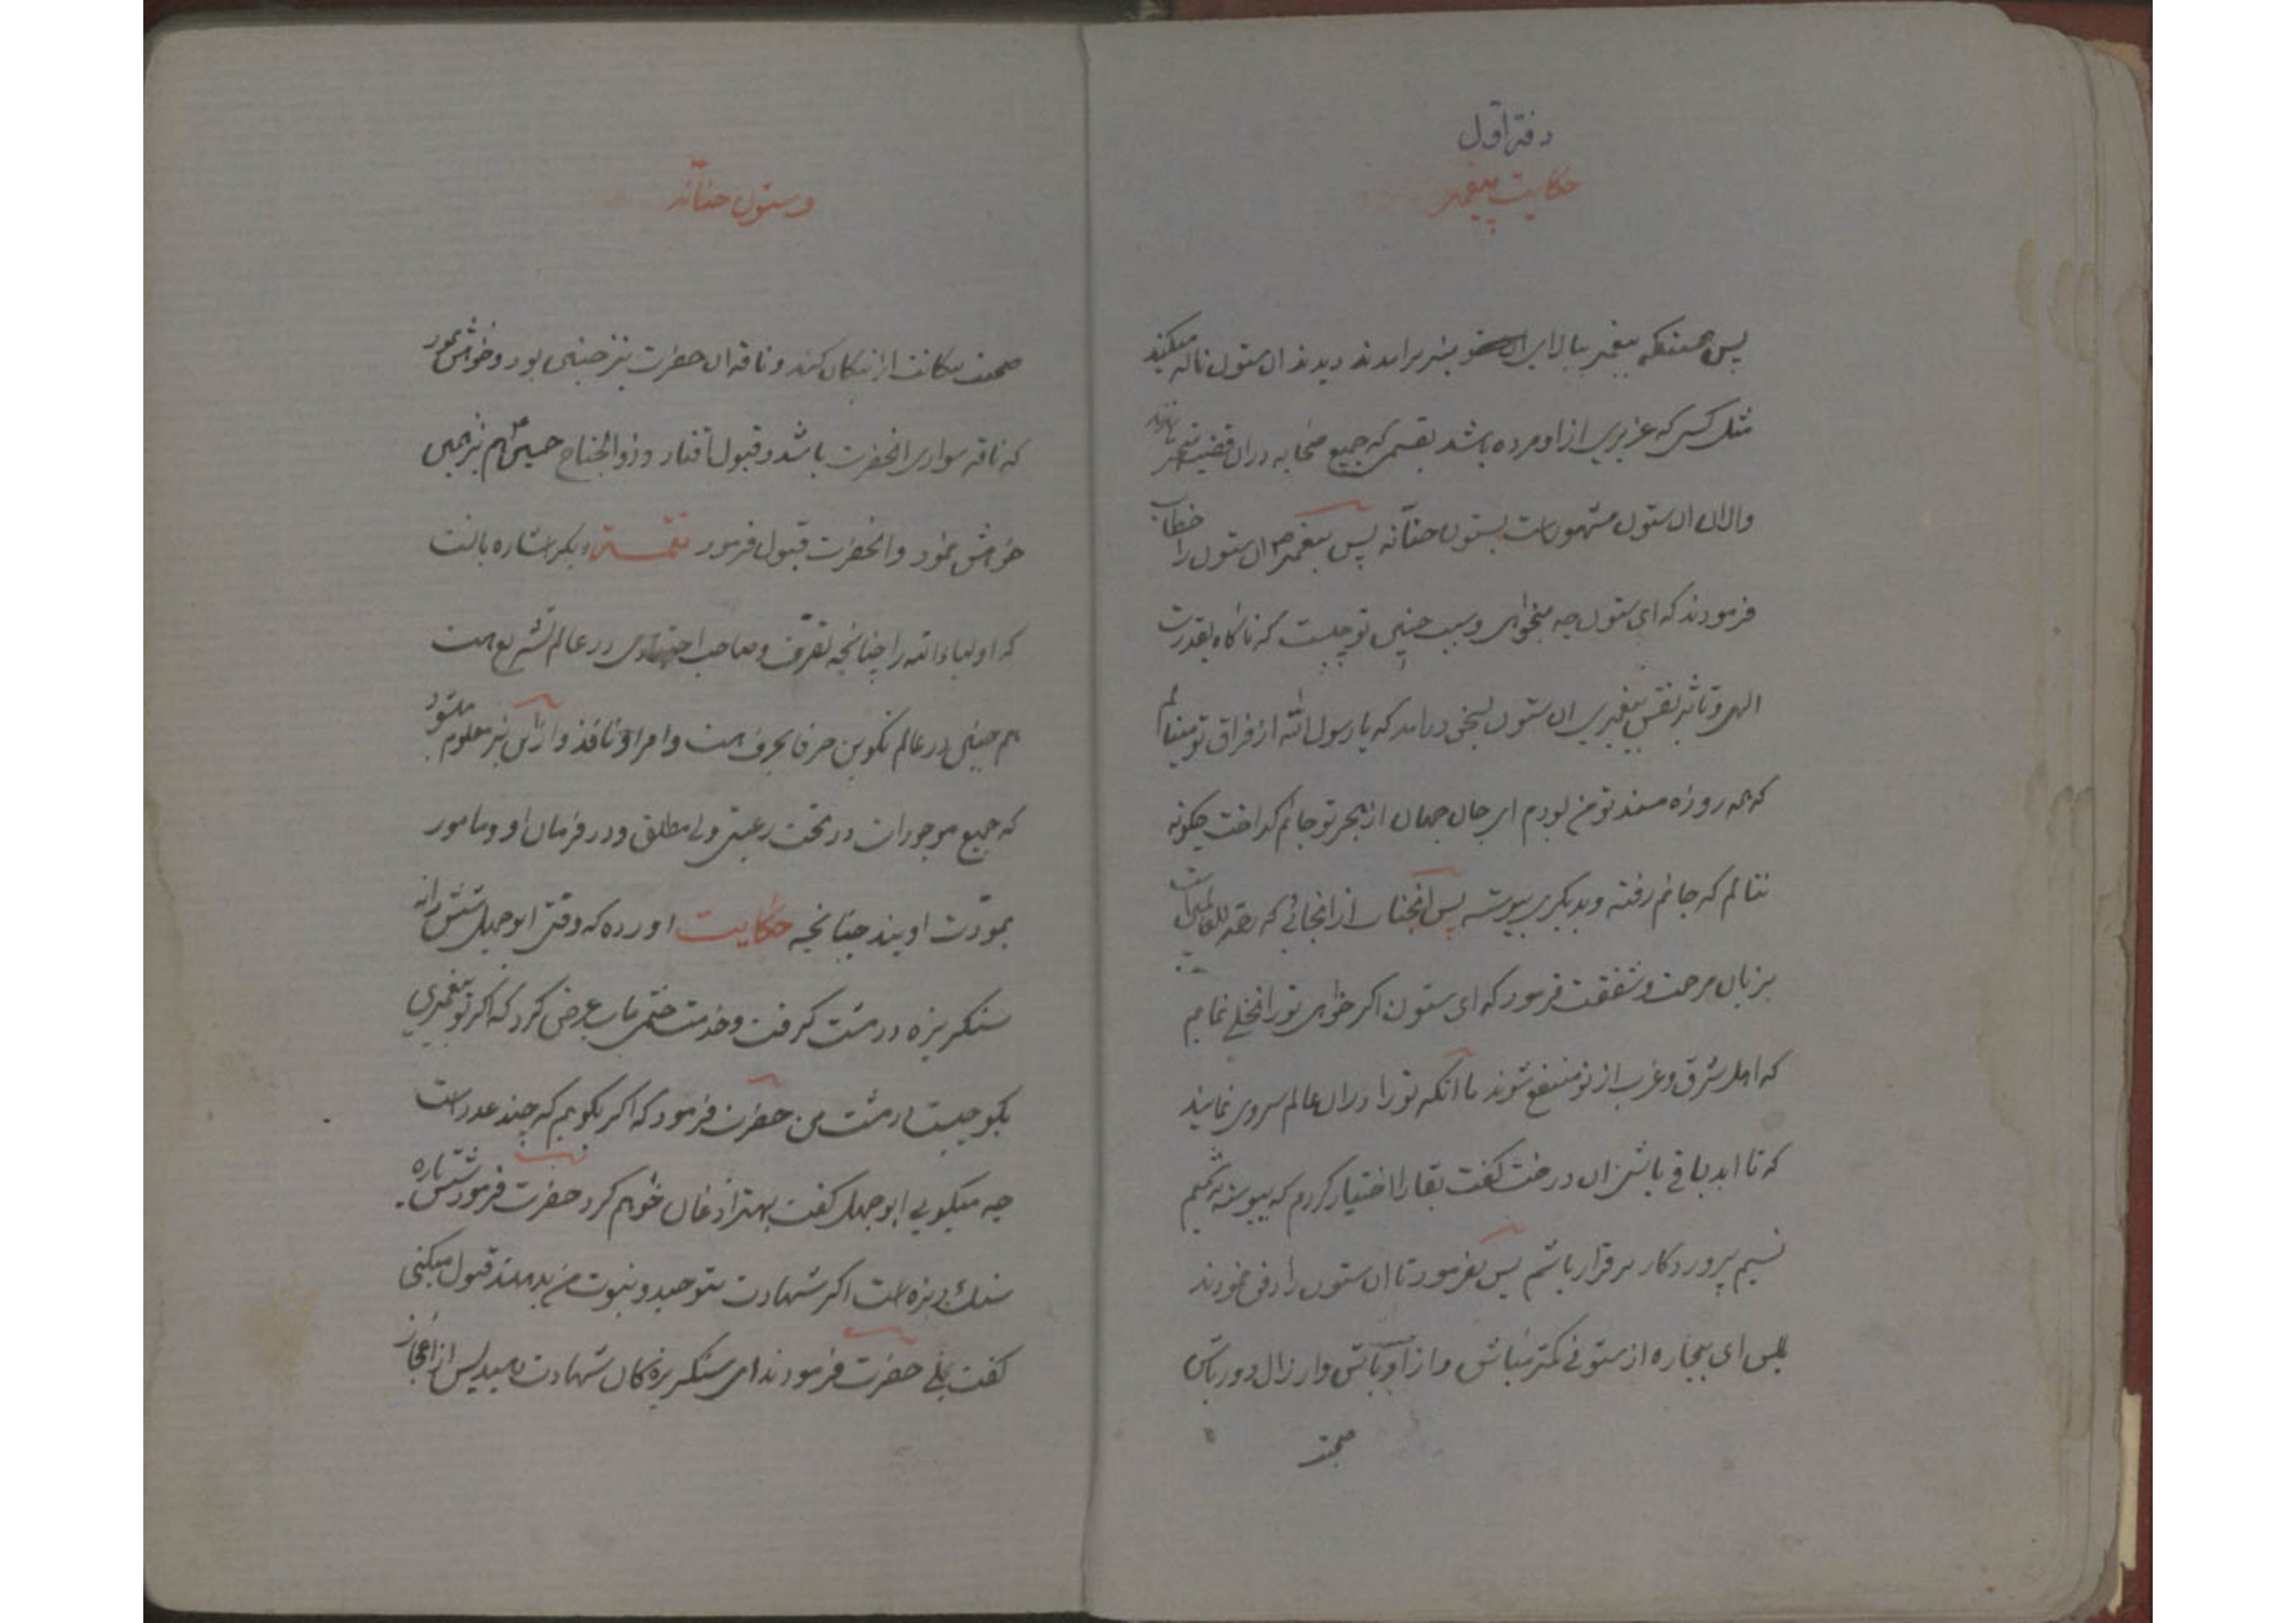 دفتر اول
حکایت پیغمبر
پس همینکه پیغمبر ببالای منبر برامدند دیدند ان ستون ناله میکند
مثل کسی که عزیزی از او مرده باشد بقسمی که جمیع صحابه دران قضیه متحیر
والان ان ستون مشهور است بستون حنانه پس پیغمبر ص ان ستون را خطاب
فرمودند که ای ستون چه میخواهی و سبب حنین تو چیست که ناگاه بقدرت
الهی و تاثیر نفس پیغمبری ان ستون بسخن درامد که یا رسول الله از فراق تو مینالم
که همه روزه مسند تو من بودم ای جان جهان از هجر تو جانم گداخت چگونه
ننالم که جانم رفته و بدیگری پیوسته پس انجناب از انجائی که رحمة للعالمین است
بزبان مرحمت و شفقت فرمود که ای ستون اگر خواهی تو را نخلی نمایم
که اهل شرق و غرب از تو منتفع شوند یا انکه تو را دران عالم سروی نمایند
که تا ابد باقی باشی ان درخت گفت بقا را اختیار کردم که پیوسته به شمیم
نسیم پروردگار برقرار باشم پس بفرمود تا ان ستون را دفن نمودند
پس ای بیچاره از ستونی کمتر مباش و از اوباش و ارزال دور باش
صحبت
و ستون حنانه
صحبت نیکانت از نیکان کند و ناقه ان حضرت نیز چنین بود و خواهش نمود
که ناقه سواری انحضرت باشد و قبول افتاد و ذوالجناح حسین ع هم نیز همین
خواهش نمود و انحضرت قبول فرمود تتمه دیگر اشاره بانست
که اولیاء الله را چنانچه تصرف و صاحب اختیاری در عالم تشریع هست
هم چنین در عالم تکوین حرفا بحرف هست و امر او نافذ و از این نیز معلوم میشود
که جمیع موجودات در تحت رعیتی ولی مطلق و در فرمان او و مامور
بمودت اویند چنانچه حکایت اورده که وقتی ابوجهل شش دانه
سنگریزه در مشت گرفت و خدمت ختمی ماب عرض کرد که اگر تو پیغمبری
بگو چیست در مشت من حضرت فرمود که اگر بگویم که چند عدد است
چه میگویی ابوجهل گفت بهتر اذعان خواهم کرد حضرت فرمود شش پاره
سنگ ریزه است اگر شهادت بتوحید و نبوت من بدهند قبول میکنی
گفت بلی حضرت فرمودند ای سنگریزه کان شهادت دهید پس از اعجاز